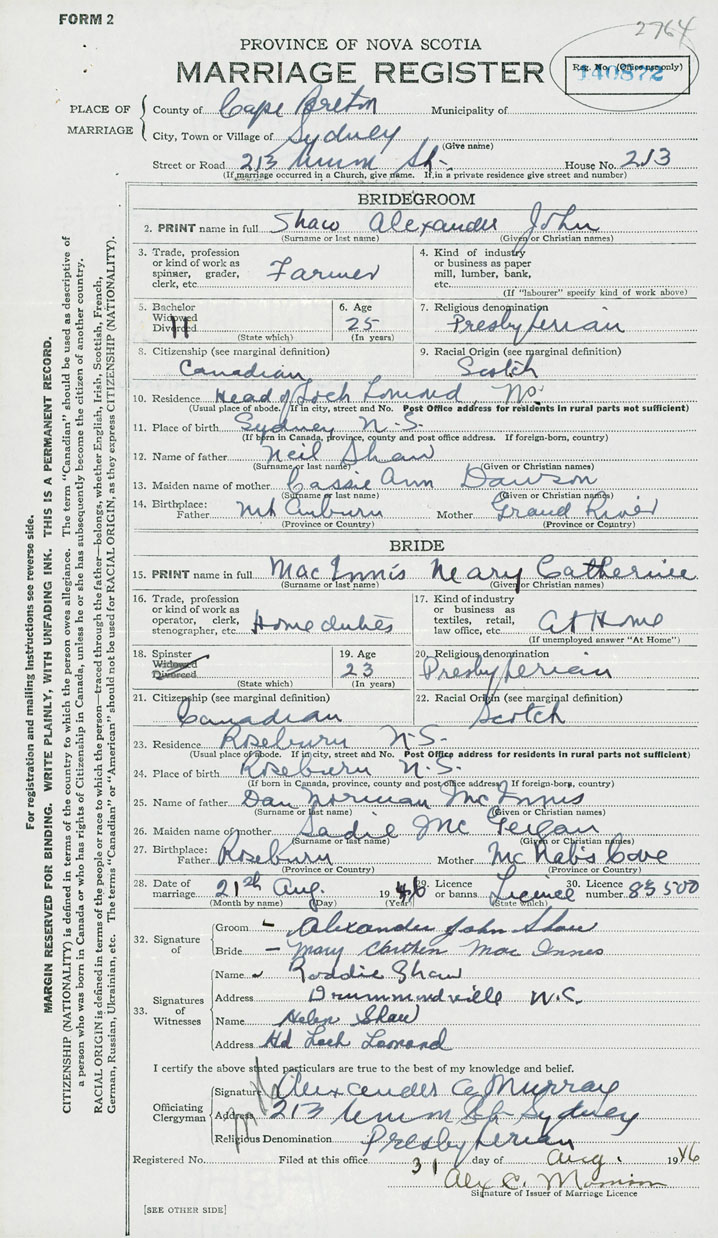 FORM 2
2764
PROVINCE OF NOVA SCOTIA
MARRIAGE REGISTER
Reg. No. (Office use only)
140872
PLACE OF MARRIAGE
County of Cape Breton Municipality of
City, Town or Village of Sydney
(Give name)
Street or Road 213 Union St. House No. 213
(If marriage occurred in a Church, give name. If in a private residence give street and number)
BRIDEGROOM
2. PRINT name in full Shaw Alexander John
(Surname or last name) (Given or Christian names)
3. Trade, profession or kind of work as spinner, grader, clerk, etc. Farmer
4. Kind of industry or business as paper mill, lumber, bank, etc.
(If "labourer" specify kind of work above)
5. Bachelor Widowed Divorced
(State which)
6. Age 25
(In years)
7. Religious denomination Presbyterian
8. Citizenship (see marginal definition) Canadian
9. Racial Origin (see marginal definition) Scotch
10. Residence Head of Loch Lomond, NS.
(Usual place of abode. If in city, street and No. Post Office address for residents in rural parts not sufficient)
11. Place of birth Sydney N.S.
(If born in Canada, province, county and post office address. If foreign-born, country)
12. Name of father Neil Shaw
(Surname or last name) (Given or Christian names)
13. Maiden name of mother Cassie Ann Dawson
(Surname or last name) (Given or Christian names)
14. Birthplace: Father Mt Auburn Mother Grand River
(Province or Country) (Province or Country)
BRIDE
15. PRINT name in full Mac Innis Mary Catherine
(Surname or last name) (Given or Christian names)
16. Trade, profession or kind of work as operator, clerk, stenographer, etc. Home duties
17. Kind of industry or business as textiles, retail, law office, etc. At Home
(If unemployed answer "At Home")
18. Spinster Widowed Divorced
(State which)
19. Age 23
(In years)
20. Religious denomination Presbyterian
21. Citizenship (see marginal definition) Canadian
22. Racial Origin (see marginal definition) Scotch
23. Residence Roseburn N.S.
(Usual place of abode. If in city, street and No. Post Office address for residents in rural parts not sufficient)
24. Place of birth Roseburn N.S.
(If born in Canada, province, county and post office address. If foreign-born, country)
25. Name of father Dan Norman McInnis
(Surname or last name) (Given or Christian names)
26. Maiden name of mother Sadie Mc
(Surname or last name) (Given or Christian names)
27. Birthplace: Father Roseburn Mother McNabs Cove
(Province or Country) (Province or Country)
28. Date of marriage 21st Aug. 1946 29. Licence or banns Licence 30. Licence number 83500
(Month by name) (Day) (Year) (State which)
32. Signature of
Groom Alexander John Shaw
Bride Mary Mac Innes
33. Signatures of Witnesses
Name Roddie Shaw
Address Drummondville N.S.
Name Helen Shaw
Address Hd Loch Lomond
I certify the above stated particulars are true to the best of my knowledge and belief.
Officiating Clergyman
Signature Alexander A. Murray
Address 213 Union St. Sydney
Religious Denomination Presbyterian
Registered No. Filed at this office 31 day of Aug. 1946
Alex C.
Signature of Issuer of Marriage Licence
[SEE OTHER SIDE]
For registration and mailing instructions see reverse side.
MARGIN RESERVED FOR BINDING. WRITE PLAINLY, WITH UNFADING INK. THIS IS A PERMANENT RECORD.
CITIZENSHIP (NATIONALITY) is defined in terms of the country to which the person owes allegiance. The term "Canadian" should be used as descriptive of
a person who was born in Canada or who has rights of Citizenship in Canada, unless he or she has subsequently become the citizen of another country.
RACIAL ORIGIN is defined in terms of the people or race to which the person—traced through the father—belongs, whether English, Irish, Scottish, French,
German, Russian, Ukrainian, etc. The terms "Canadian" or "American" should not be used for RACIAL ORIGIN, as they express CITIZENSHIP (NATIONALITY).